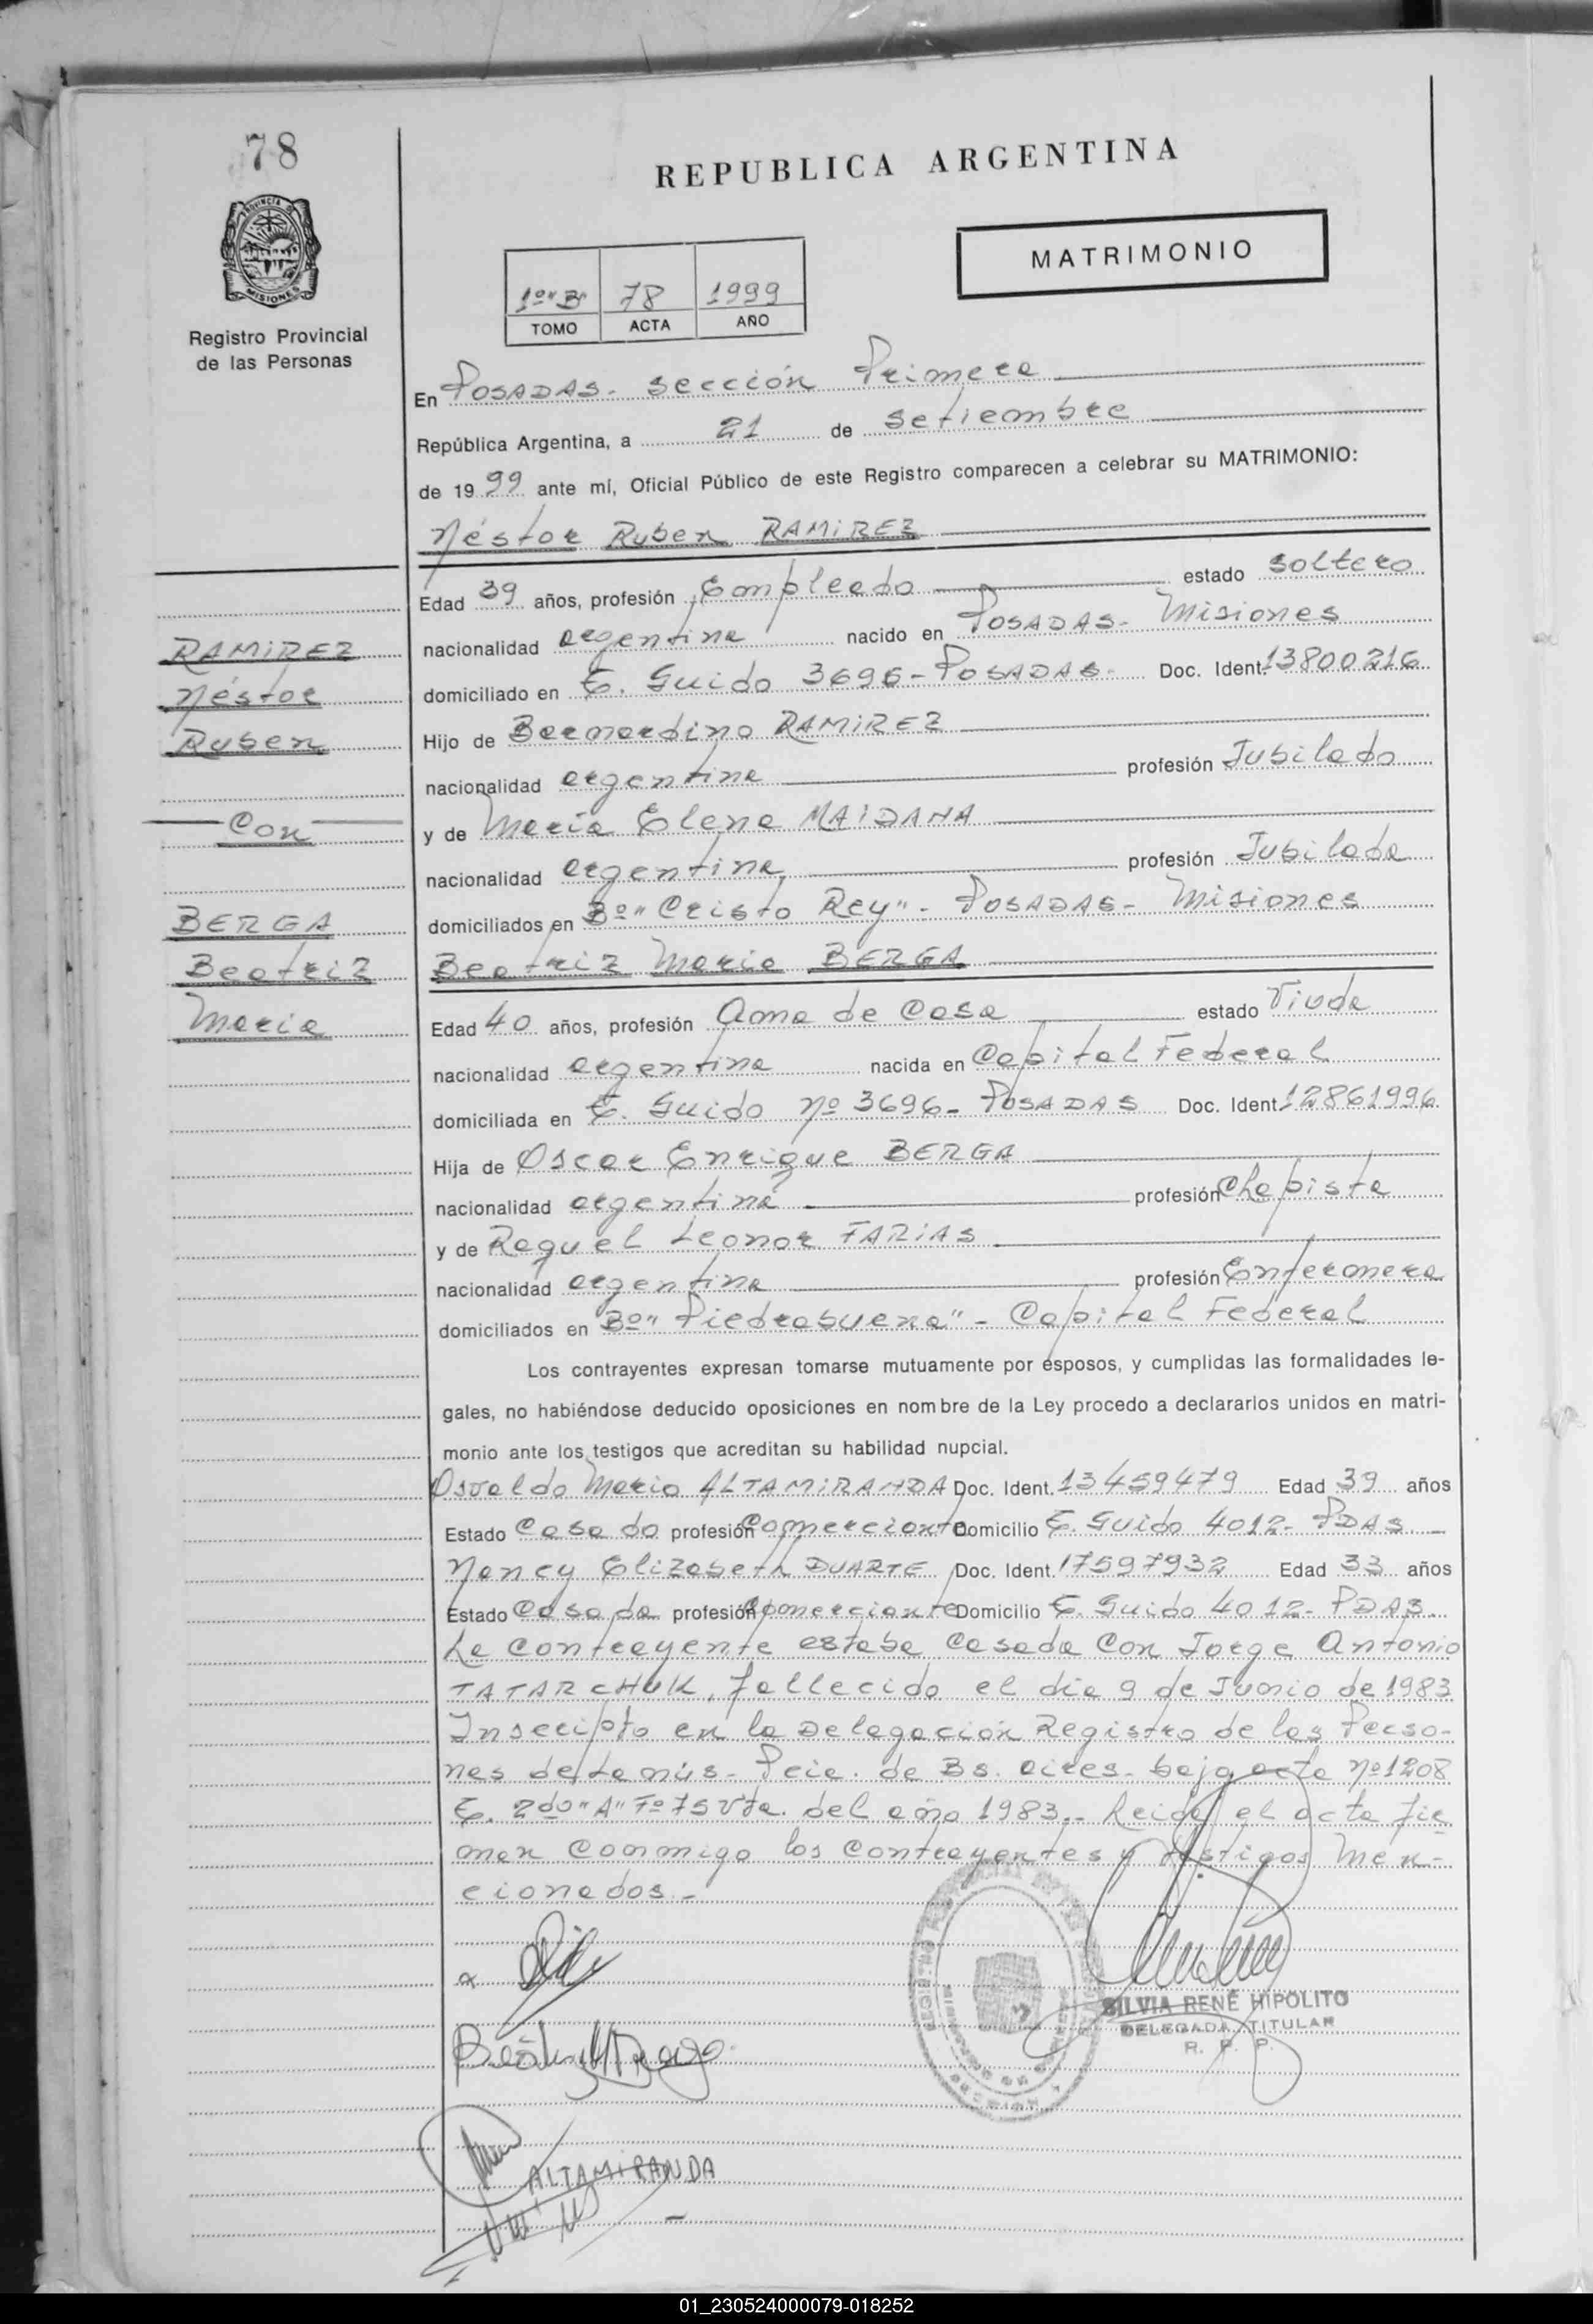 78
REPUBLICA ARGENTINA
PROVINCIA DE
MISIONES
MATRIMONIO
1º"B" 78 1999
TOMO ACTA AÑO
Registro Provincial
de las Personas
En POSADAS- sección Primera
República Argentina, a 21 de setiembre
de 1999 ante mí, Oficial Público de este Registro comparecen a celebrar su MATRIMONIO:
Néstor Ruben RAMIREZ
Edad 39 años, profesión Empleado estado soltero
nacionalidad argentina nacido en POSADAS- Misiones
domiciliado en T. Guido 3696- POSADAS- Doc. Ident. 13800216
Hijo de Bernardino RAMIREZ
nacionalidad argentina profesión Jubilado
y de María Elena MAIDANA
nacionalidad argentina profesión Jubilada
domiciliados en Bº"Cristo Rey"- POSADAS- Misiones
RAMIREZ
Néstor
Ruben
Con
BERGA
Beatriz
Maria
Beatriz Maria BERGA
Edad 40 años, profesión Ama de Casa estado Viuda
nacionalidad argentina nacida en Capital Federal
domiciliada en T. Guido nº 3696- POSADAS Doc. Ident. 12861996
Hija de Oscar Enrique BERGA
nacionalidad argentina profesión Chapista
y de Raquel Leonor FARIAS
nacionalidad argentina profesión Enfermera
domiciliados en Bº"Piedrabuena"- Capital Federal
Los contrayentes expresan tomarse mutuamente por esposos, y cumplidas las formalidades le-
gales, no habiéndose deducido oposiciones en nombre de la Ley procedo a declararlos unidos en matri-
monio ante los testigos que acreditan su habilidad nupcial.
Osvaldo Mario ALTAMIRANDA Doc. Ident. 13459479 Edad 39 años
Estado Casado profesión Comerciante Domicilio T. Guido 4012- PDAS
Nancy Elizabeth DUARTE Doc. Ident. 17597932 Edad 33 años
Estado Casada profesión Comerciante Domicilio T. Guido 4012- PDAS
La contrayente estaba casada con Jorge Antonio
TATARCHUK, fallecido el dia 9 de Junio de 1983
Inscripto en la Delegación Registro de las Perso-
nas de Lanús- Pcia. de Bs. aires- bajo acta nº1208
T. 2do"A" Fº75 Vta. del año 1983.- Leida el acta fir-
man conmigo los contrayentes y testigos men-
cionados.-
ALTAMIRANDA
SILVIA RENÉ HIPOLITO
DELEGADA TITULAR
R. P. P.
01_230524000079-018252